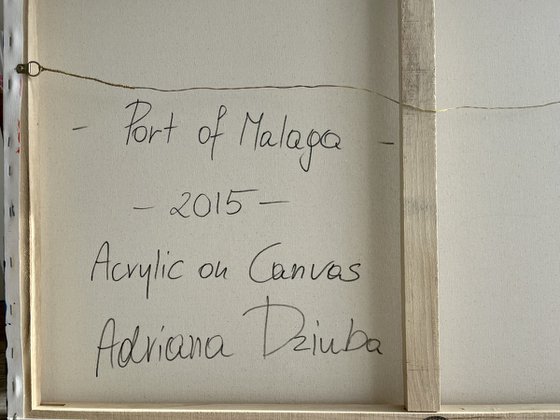 - Port of Malaga -
- 2015 -
Acrylic on Canvas
Adriana Dziuba